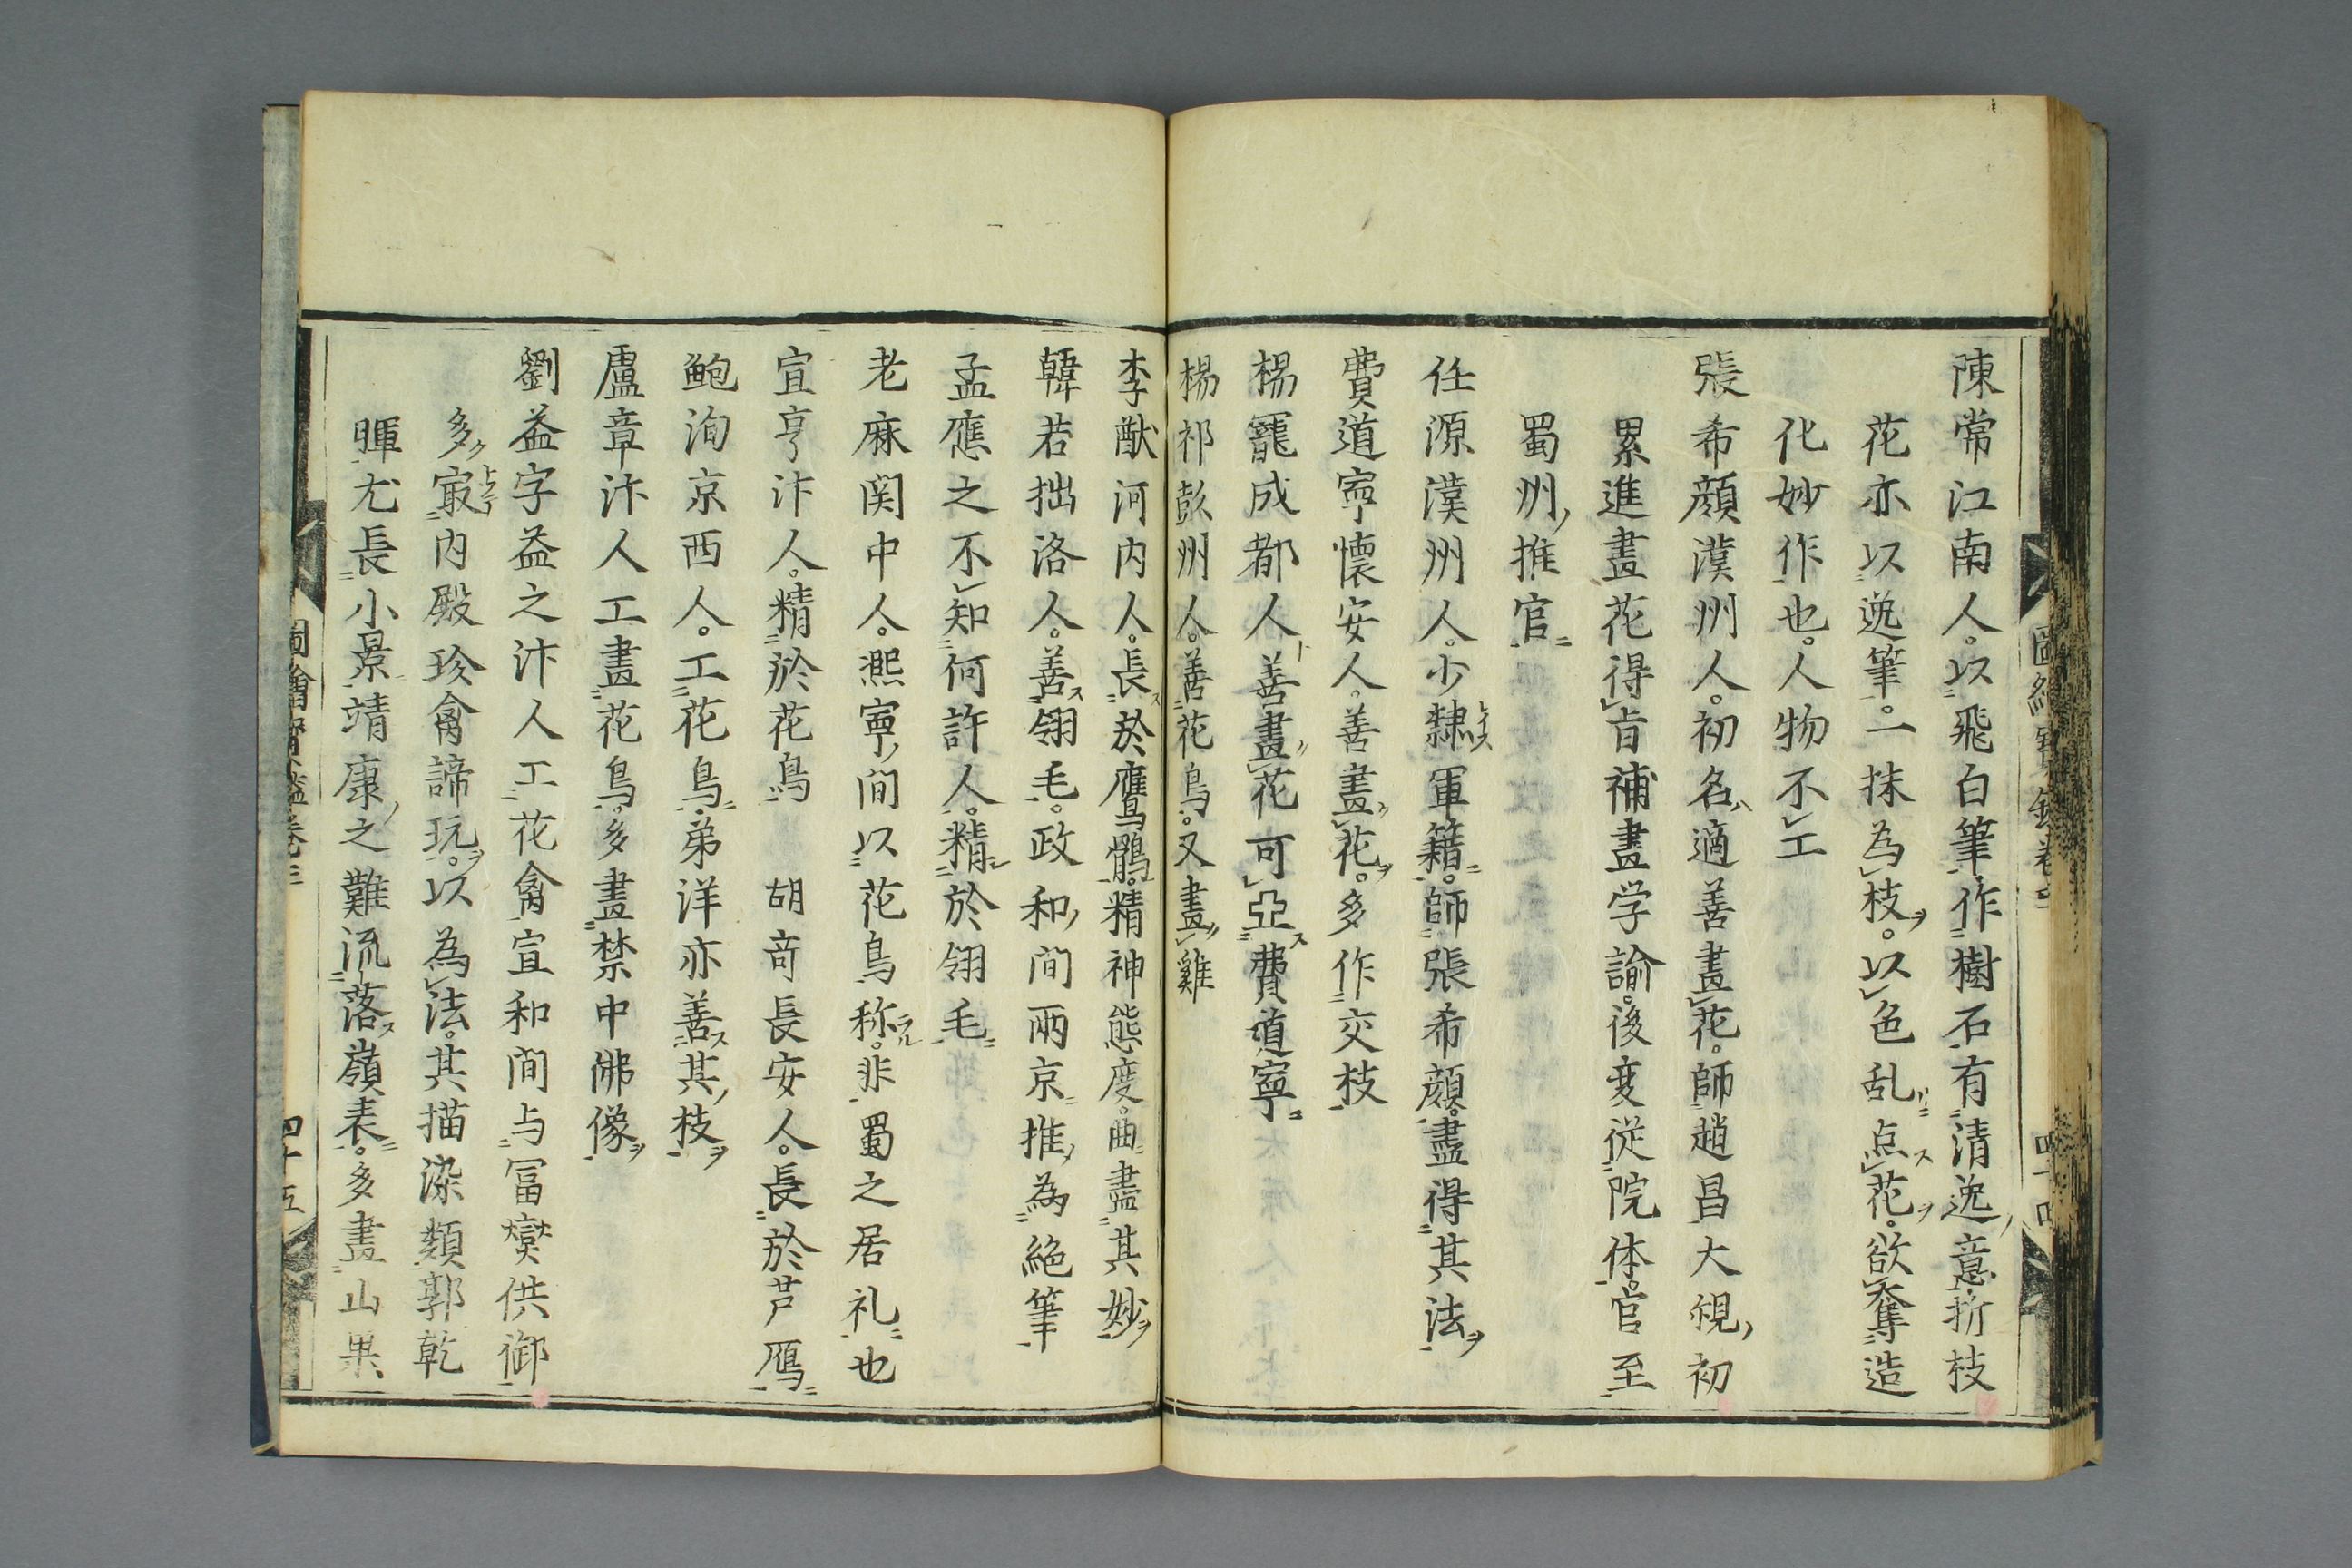 陳常江南人。以飛白筆作樹石有清逸意折枝
花亦以逸筆。一抹為枝。以色乱点花。欲奪造
化妙作也。人物不工
張希顔漢州人。初名適善畫花。師趙昌大䙷初
累進畫花得㫖補畫学諭。後变從院体。官至
蜀州推官
任源漢州人。少隸軍籍。師張希顔。盡得其法
費道寧懐安人。善畫花。多作交枝
楊寵成都人善畫花可亞費道寧
楊祁彭州人。善花鳥。又畫雞
李猷河内人。長於鷹鶻。精神態度。曲盡其妙
韓若拙洛人。善翎毛。政和間兩京推為絶筆
孟應之不知何許人。精於翎毛
老麻関中人。熙寧間以花鳥称。非蜀之居礼也
宣亨汴人。精於花鳥　胡竒長安人。長於芦鴈
鮑洵京西人。工花鳥。弟洋亦善其枝
盧章汴人工畫花鳥。多畫禁中佛像
劉益字益之汴人工花禽宣和間与冨燮供御
多寂内殿珍禽諦玩。以為法。其描染類郭乾
暉尤長小景靖康之難流落嶺表。多畫山果
圖繪寳鑑卷三
四十五